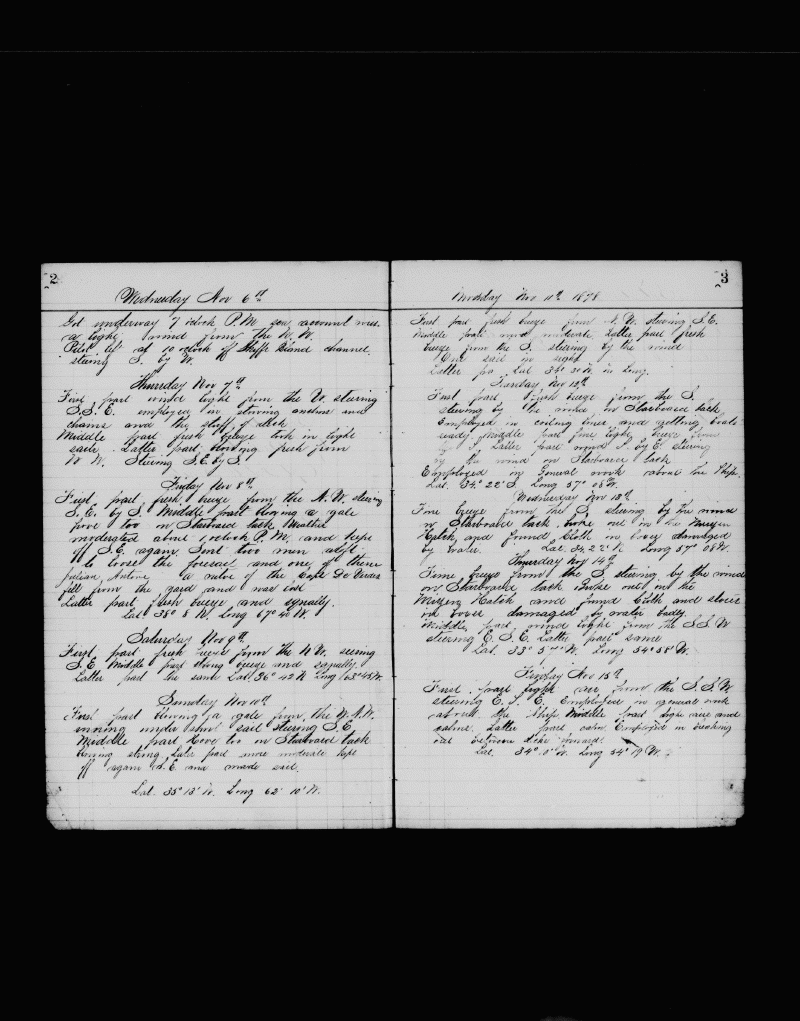 2
Wednesday Nov 6th
Got underway 7 oclock P.M. sea account
a light wind from the N.W.
Pilot left at 10 oclock off channel
steering S. by W.
Thursday Nov 7th
First part wind light from the W. steering
S.S.E. employed in stowing anchors and
chains and the stuff of deck
Middle part fresh breeze took in light
sails. Latter part blowing fresh from
N.W. Steering S.E. by S.
Friday Nov 8th
First part fresh breeze from the N.W. steering
S.E. by S. Middle part blowing a gale
hove too on Starboard tack Weather
moderated about 1 oclock P.M. and kept
off S.E. again. Sent two men aloft
to loose the foresail and one of them
Julian Antone a native of the Cape De Verdes
fell from the yard and was lost
Latter part fresh breeze and squally.
Lat. 38° 8 N. Long 67° 40 W.
Saturday Nov 9th
First part fresh breeze from the N.W. steering
S.E. Middle part strong breeze and squally
Latter part the same Lat 36° 42 N Long 63° 45 W.
Sunday Nov 10th
First part blowing a gale from the N.N.W.
running under short sail steering S.E.
Middle part hove too on Starboard tack
blowing strong Later part more moderate kept
off again S.E. and made sail.
Lat. 35° 13' N. Long 62° 10' W.
3
Monday Nov 11th 1878
First part fresh breeze from N.W. steering S.E.
Middle part wind moderate Latter part fresh
breeze from the S. steering by the wind
One sail in sight
Latter pa Lat 34° 31 N. Long.
Tuesday Nov 12th
First part fresh breeze from the S.
steering by the wind on Starboard tack
Employed in coiling lines and getting boats
ready Middle part fine light breeze from
S. Latter part wind S. by E. steering
by the wind on Starboard tack
Employed in General work about the Ship.
Lat. 34° 22 S. Long 57° 08 W.
Wednesday Nov 13th
Fine breeze from the S. steering by the wind
on Starboard tack. broke out in the Mizzen
Hatch and found Cloth in boxes damaged
by water. Lat. 34. 22' N Long 57° 08 W.
Thursday Nov 14th
Fine breeze from the S steering by the wind
on Starboard tack Broke out in the
Mizzen Hatch and found Cloth and shoes
in boxes damaged by water badly
Middle part wind light from the S.S.W
steering E.S.E. Latter part same
Lat. 33° 57' N. Long 54° 58' W.
Friday Nov 15th
First part light air from the S.S.W
steering E.S.E. Employed in general work
about the Ship Middle part light airs and
calms. Latter part calm. Employed in breaking
out between decks forward
Lat. 34° 0' N. Long 54° 19 W.